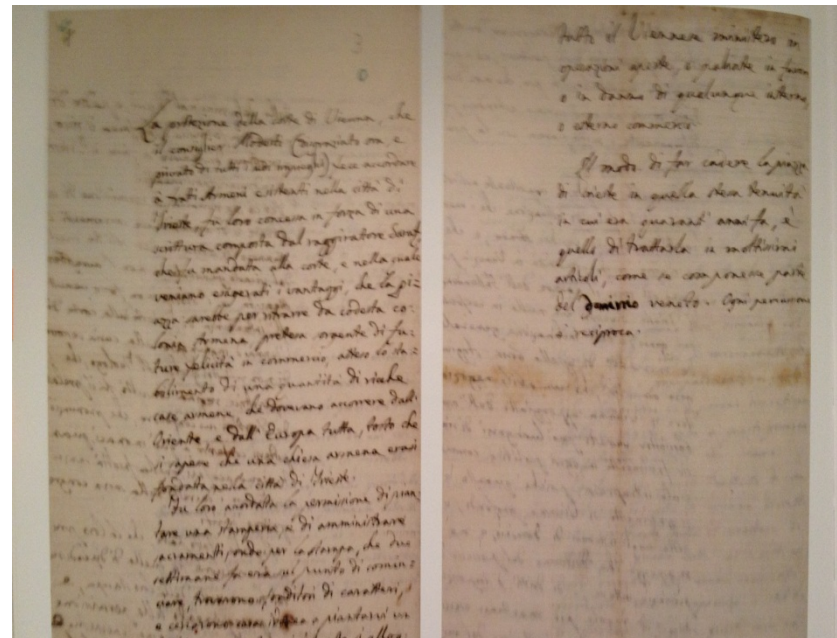 3
La protezione della corte di Vienna, che
il consiglier Modesti (
privato di tutti i suoi ) fece accordare
a frati Armeni esistenti nella città di
Trieste, fu loro concessa in forza di una
scrittura composta dal raggiratore
che fu mandata alla corte, e nella quale
venivano esagerati i vantaggi, che la pia-
azza sarebbe per ritrarre da codesta co-
lonia Armena pretesa sorgente di fu-
ture felicità in commercio, atteso lo sta-
bilimento di una quantità di ricche
case armene, che dovevano accorrere dall'
Oriente, e dall'Europa tutta, tosto che
si sapesse che una chiesa armena erasi
fondata nella città di Trieste.
Fu loro accordata la permissione di pian-
tare una stamperia, e di amministrare
sacramenti, onde per la stampa, che due
settimane fa era sul punto di comin-
ciare, trovarono fonditori di caratteri,
e a piantarvi un
tutto il Viennese ministero in
operazioni queste, o palliate in favore
o in danno di qualunque interno,
o esterno commercio.
Il modo di far cadere la piazza
di Trieste in quella stessa tenuità
in cui era quarant'anni fa, è
quello di trattarla in moltissimi
articoli, come se componesse parte
del dominio veneto. Ogni permissione
è reciproca.